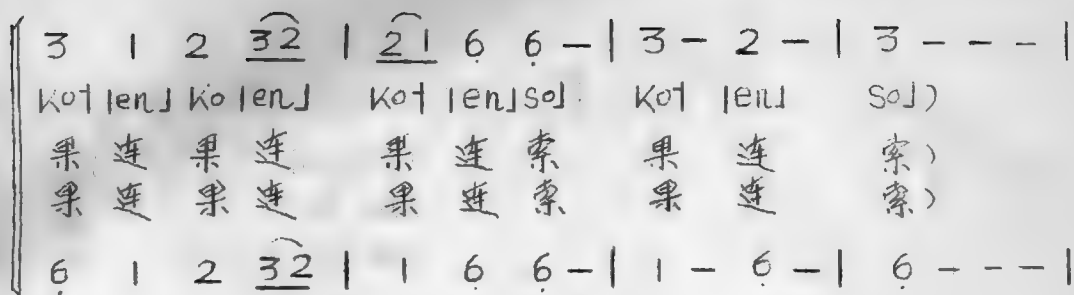 3 1 2 32 | 2 1 6̣ 6̣ — | 3 — 2 — | 3 — — — |
ko˧ len˩ ko len˩ ko˧ len˩ so˩ ko˧ len˩ so˩)
果 连 果 连 果 连 索 果 连 索)
果 连 果 连 果 连 索 果 连 索)
6̣ 1 2 32 | 1 6̣ 6̣ — | 1 — 6̣ — | 6̣ — — — |